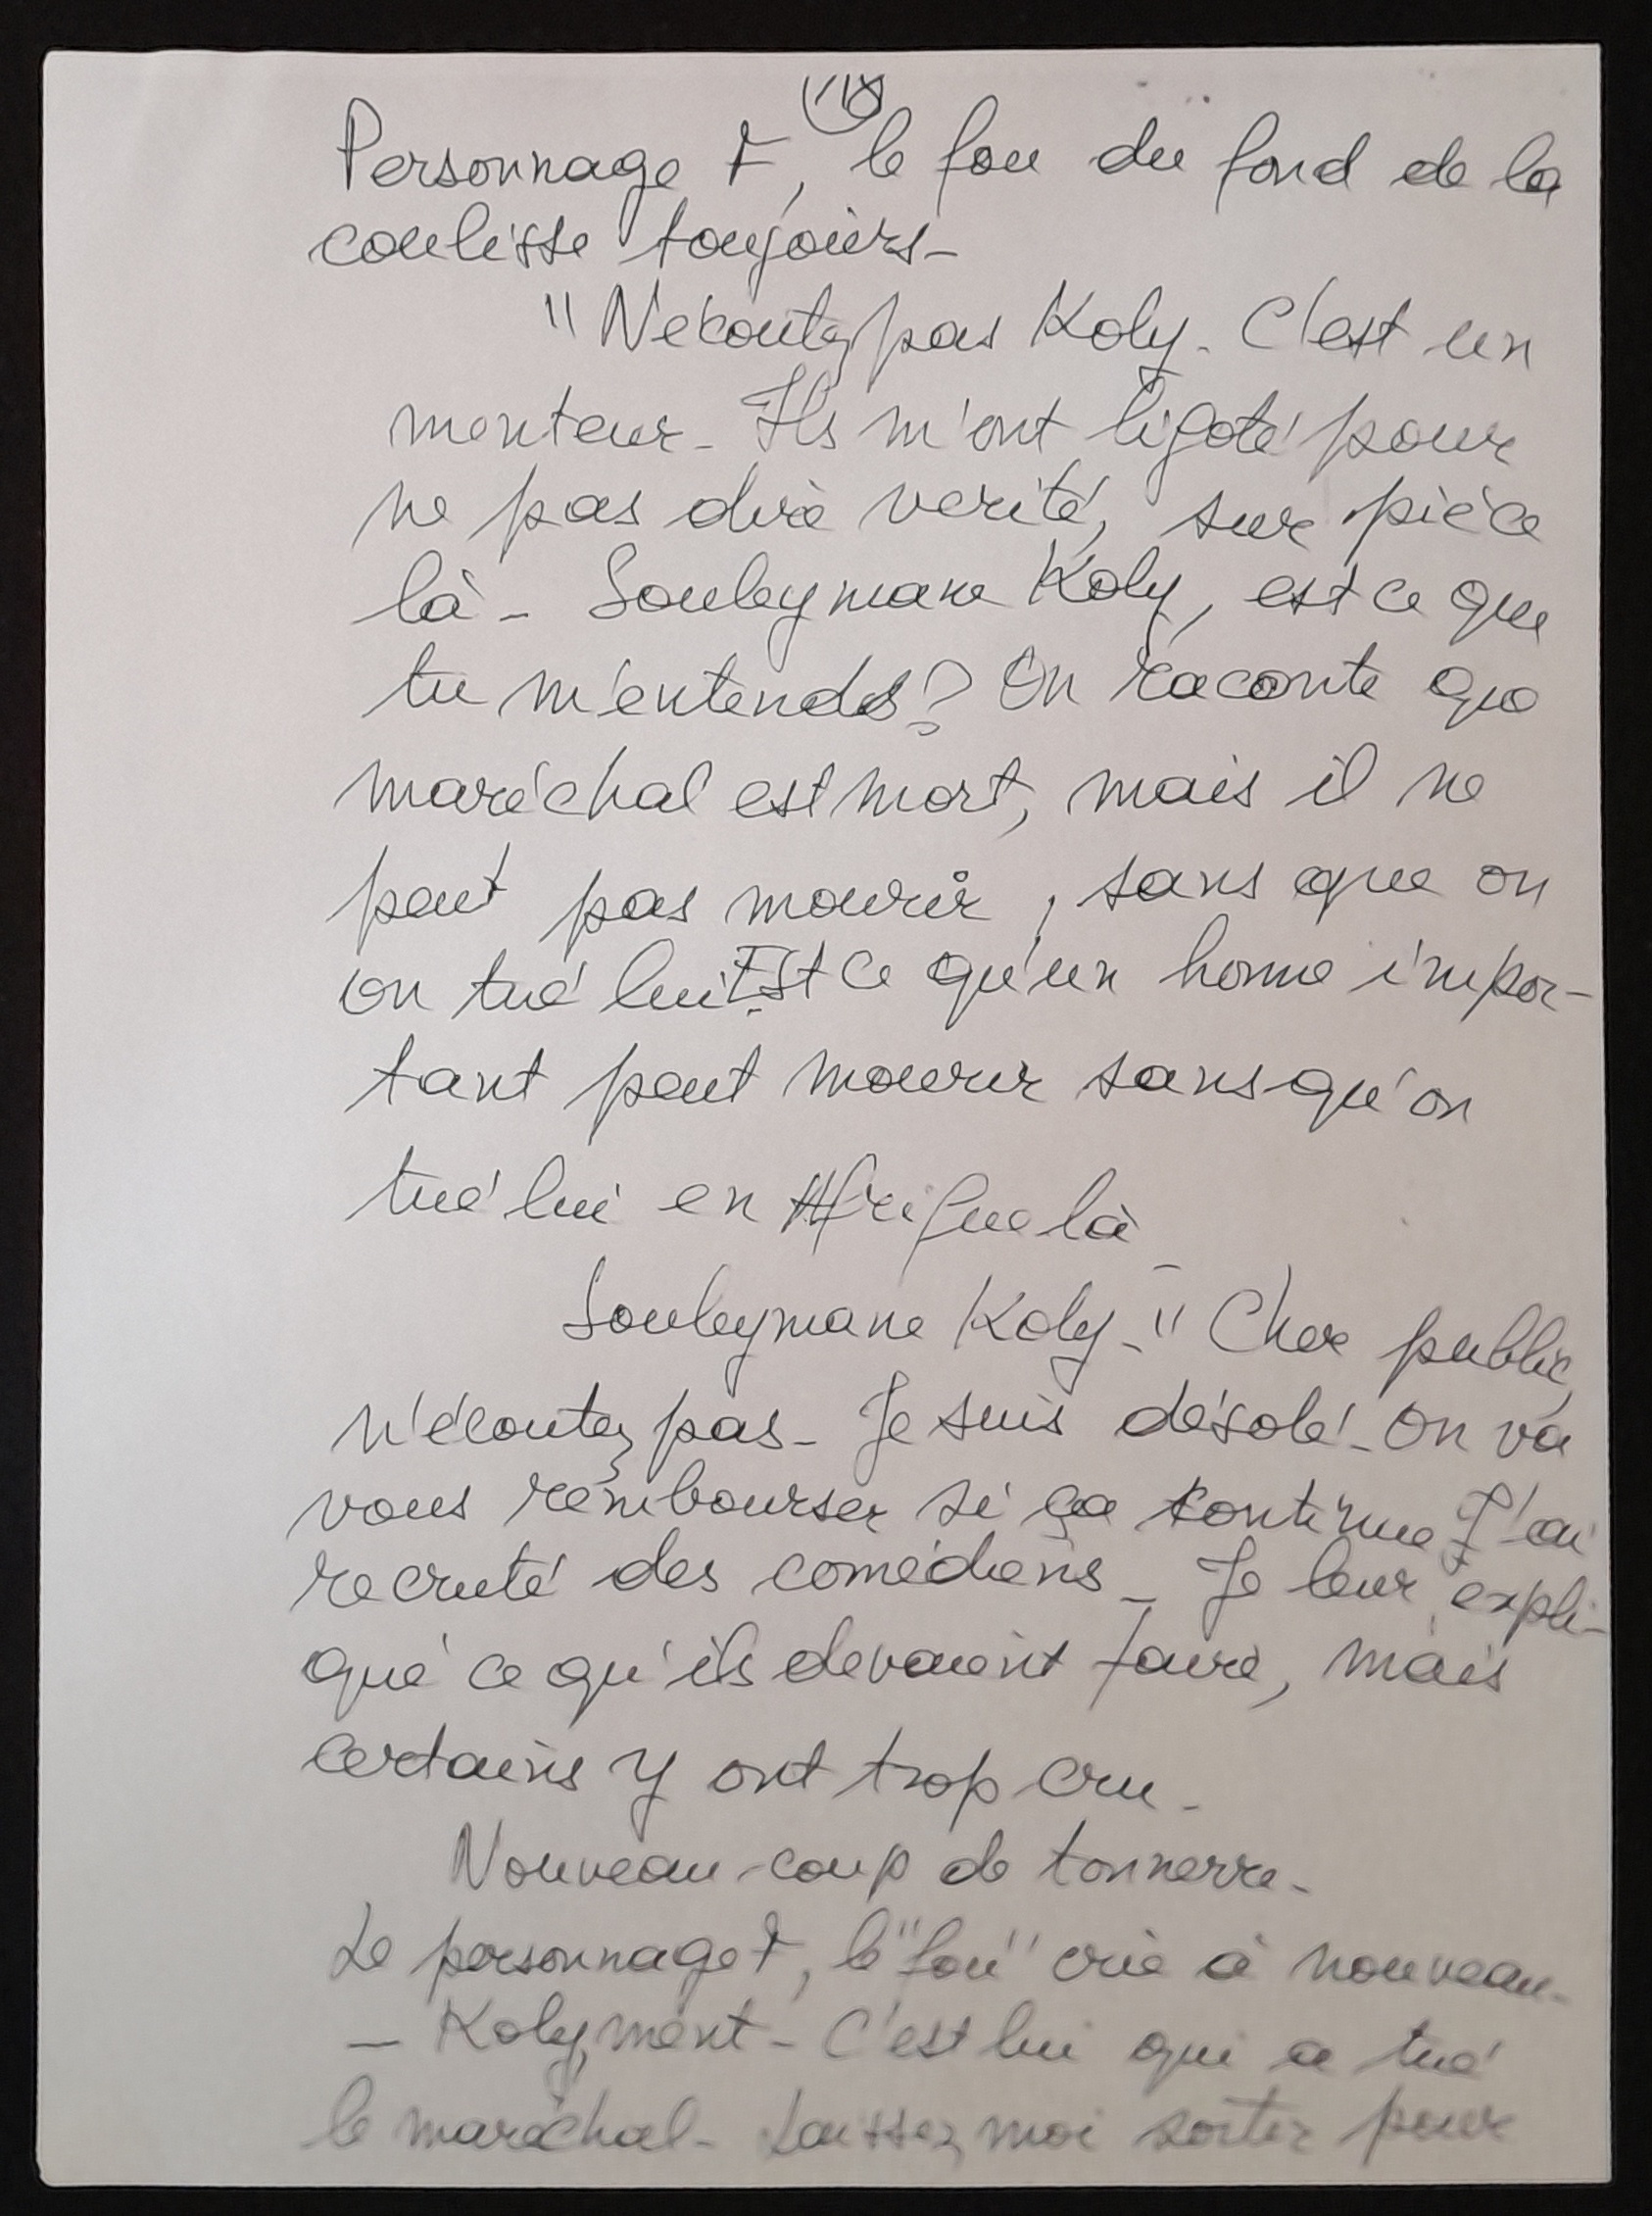 Personnage F, le fou du fond de la
coulisse toujours-
"N'ecoutez pas Koly. C'est un
menteur- Ils m'ont ligoté pour
ne pas dire verité, sur pièce
là- Souleymane Koly, est ce que
tu m'entends? On raconte que
maréchal est mort, mais il ne
peut pas mourir, sans que on
on tué lui. Est ce qu'un home impor-
tant peut mourir sans qu'on
tué lui en Afrique là-
Souleymane Koly-" Cher public,
n'écoutez pas- Je suis désolé- On va
vous rembourser si ça continue J'ai
recruté des comédiens- Je leur expli-
qué ce qu'ils devaient faire, mais
certains y ont trop cru-
Nouveau coup de tonnerre-
Le personnage F, le "fou" crie à nouveau-
- Koly ment- C'est lui qui a tué
le maréchal- Laissez moi sortir pour